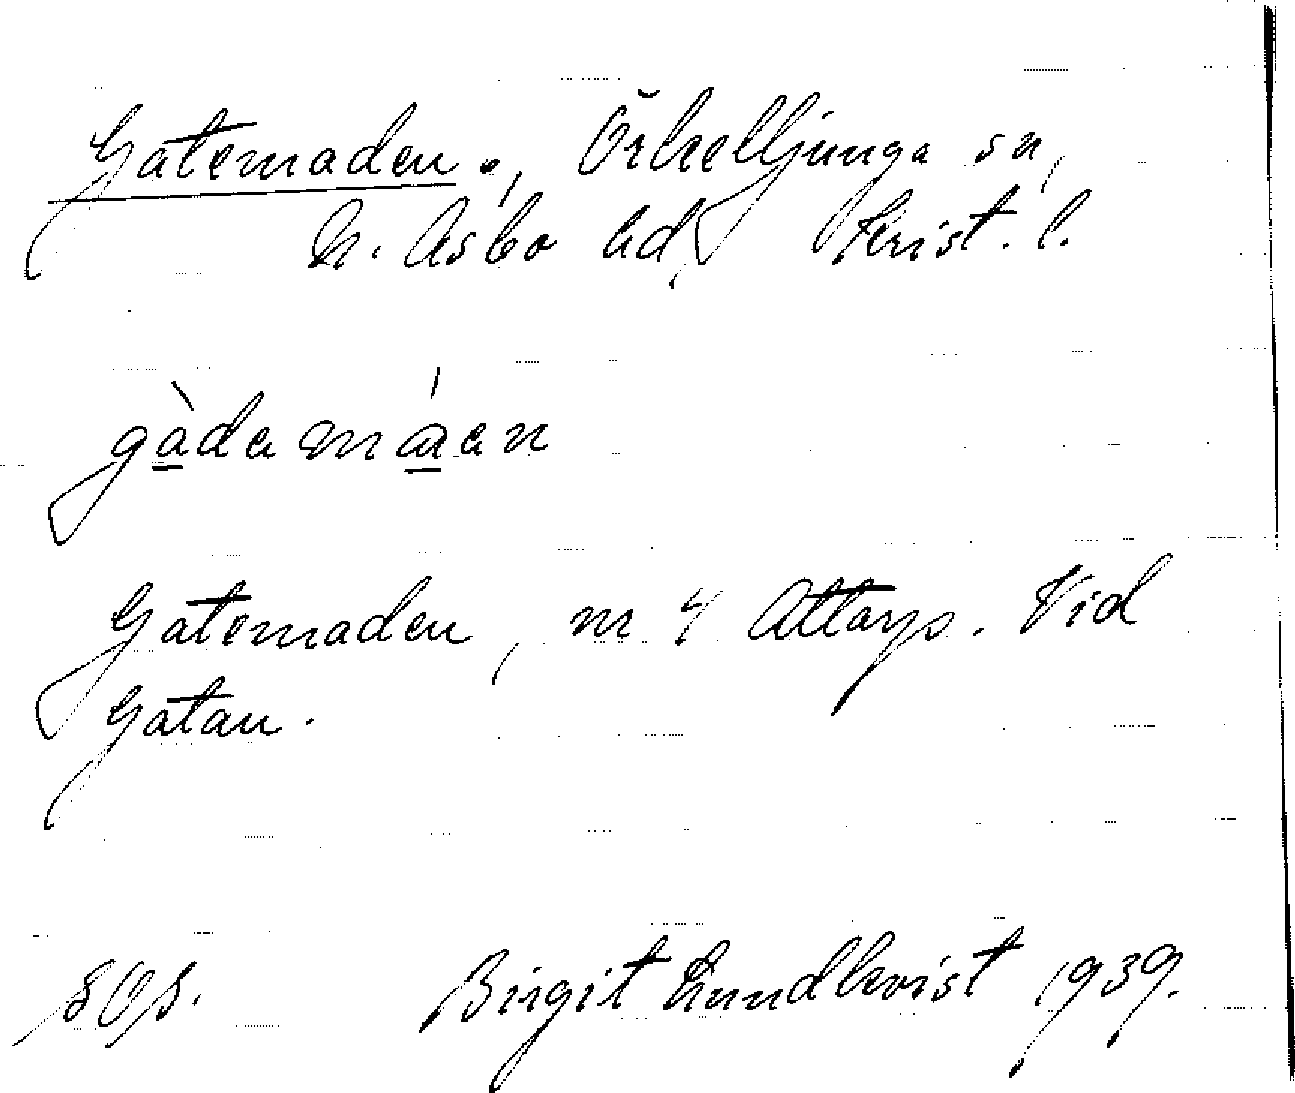 Gatemaden., Örkelljunga sn,
N. Åsbo hd, Krist. l.
gàdamáen
Gatemaden, m 4 Attarp. Vid
Gatan.
Birgit Lundkvist 1939.